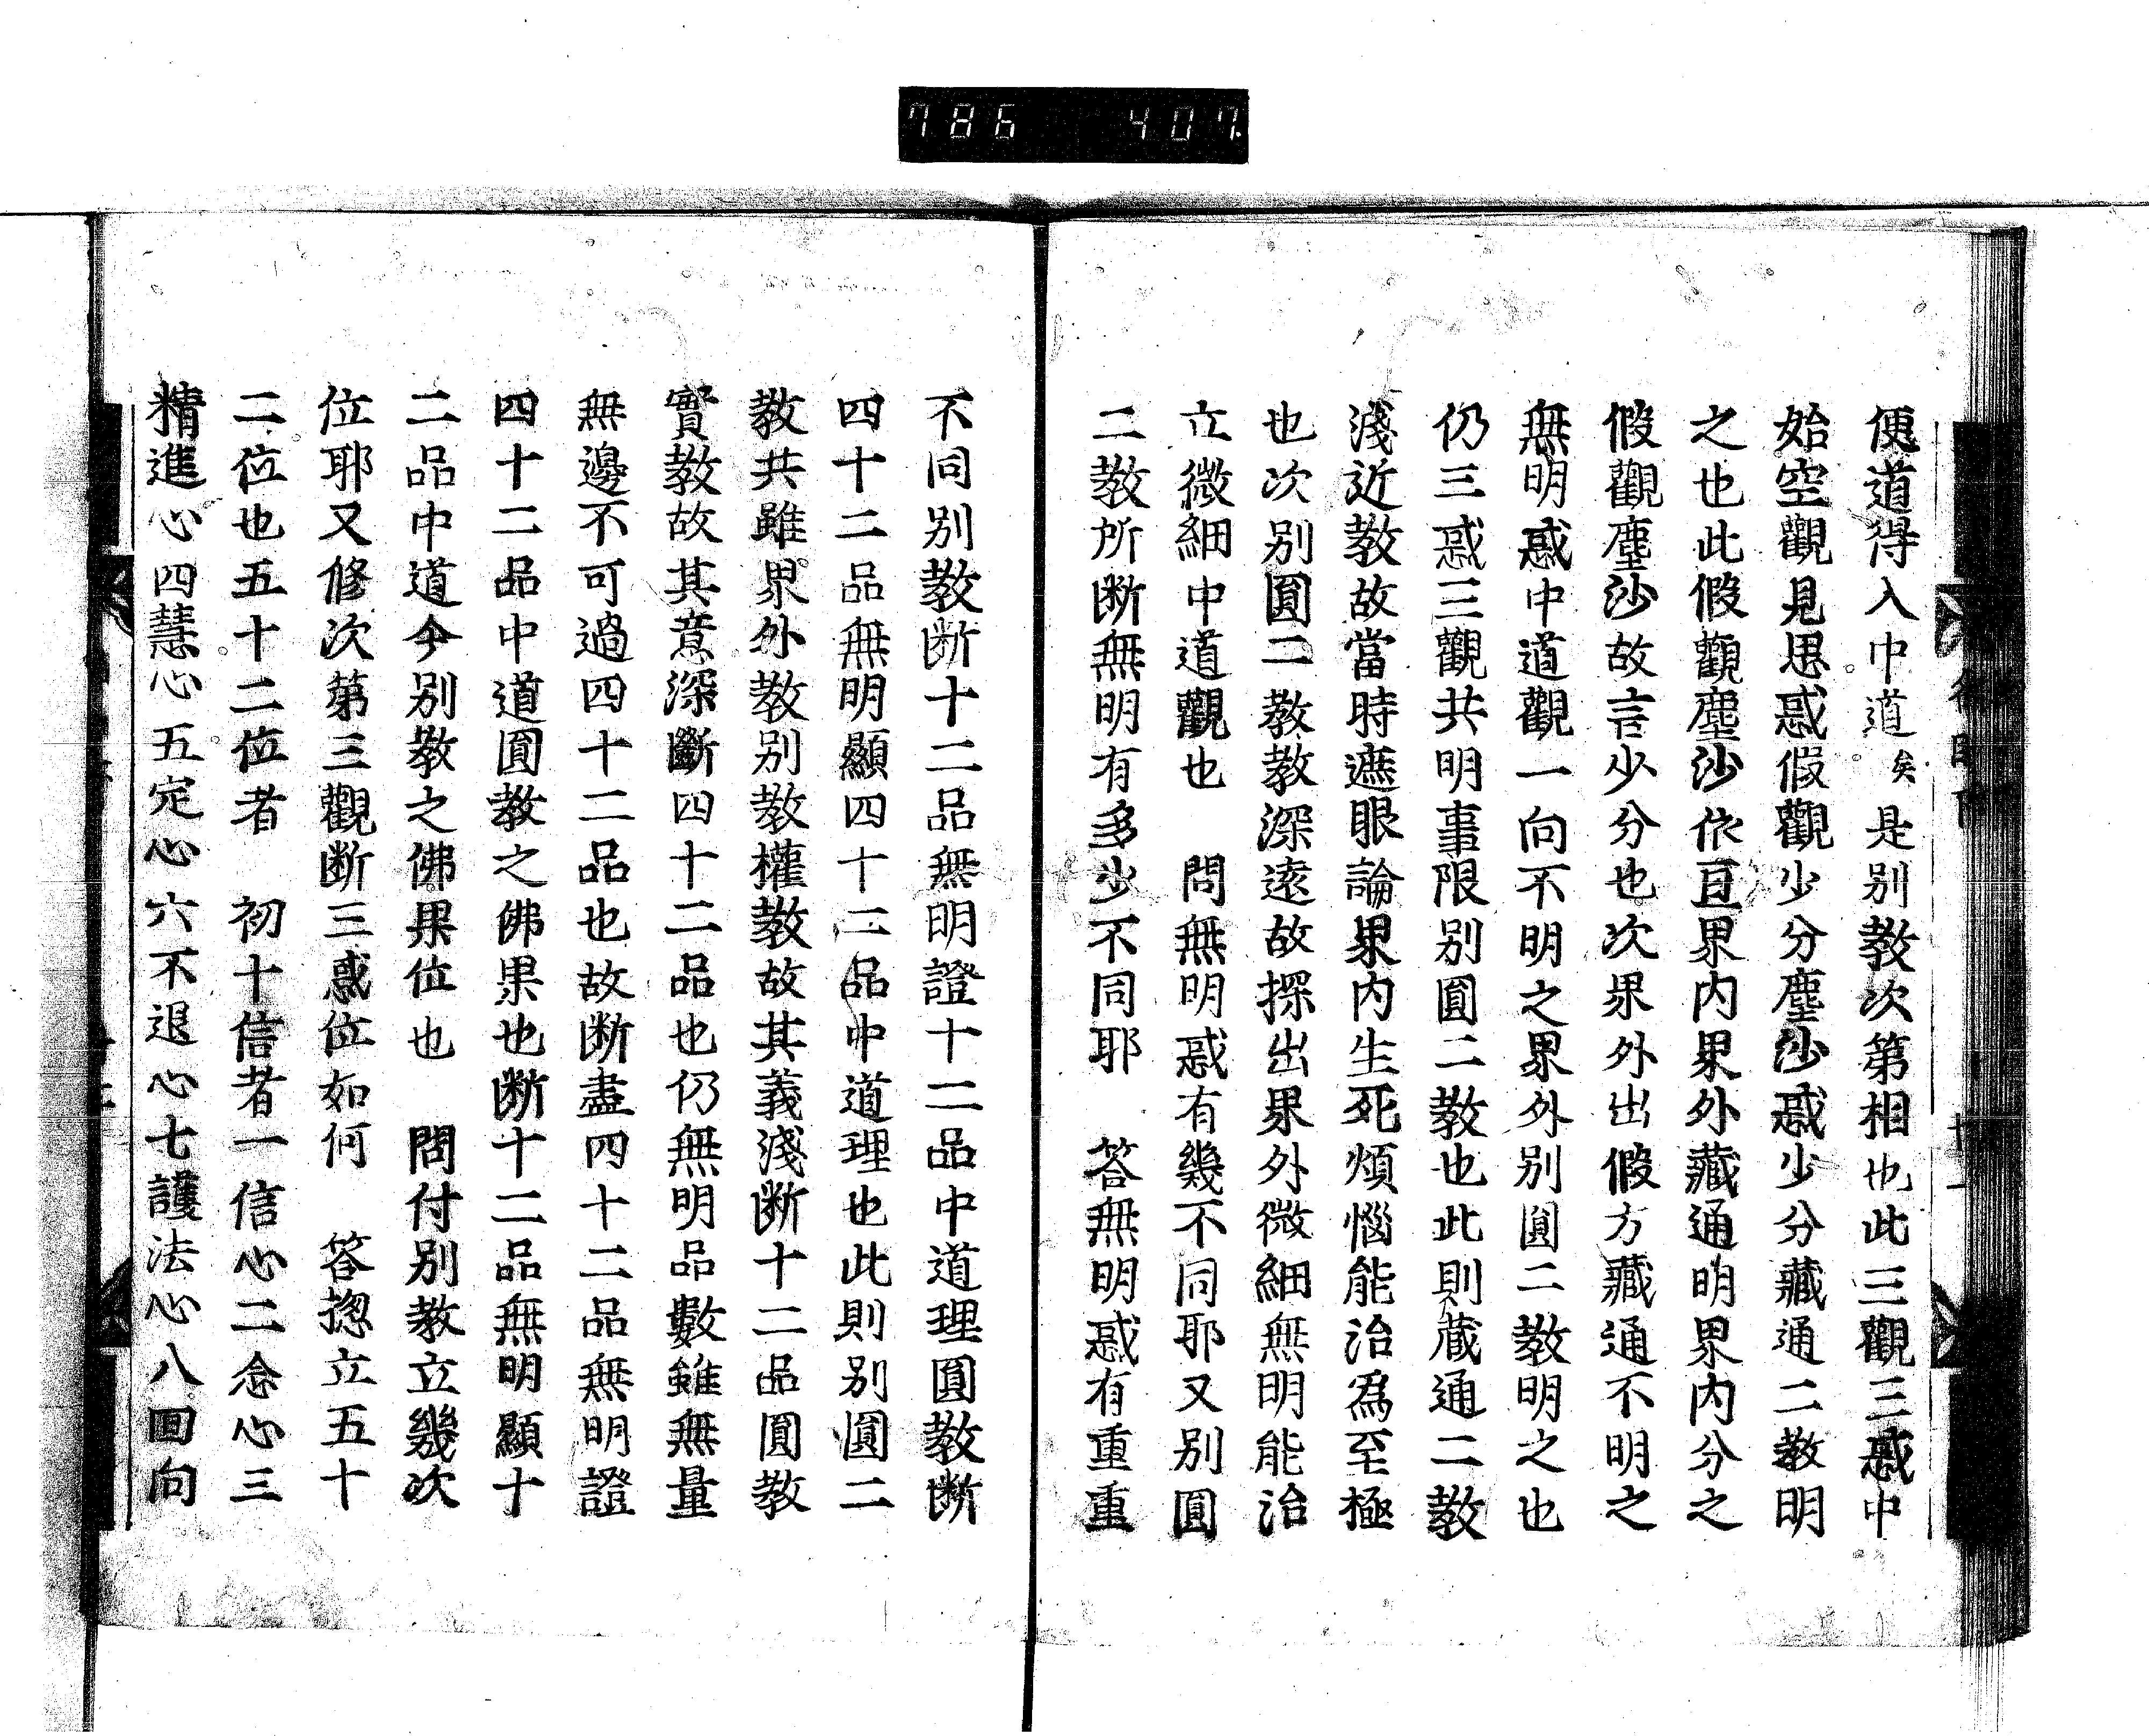 786 407.
便道得入中道矣是別教次第相也此三觀三惑中
始空觀見思惑假觀少分塵沙惑少分藏通二教明
之也此假觀塵沙依亘界内界外藏通明界内分之
假觀塵沙故言少分也次界外出假方藏通不明之
無明惑中道觀一向不明之界外別圓二教明之也
仍三惑三觀共明事限別圓二教也此則藏通二教
淺近教故當時遮眼論界内生死煩惱能治爲至極
也次別圓二教教深遠故探出界外微細無明能治
立微細中道觀也 問無明惑有幾不同耶又別圓
二教所断無明有多少不同耶 答無明惑有重重
不同別教断十二品無明證十二品中道理圓教断
四十二品無明顯四十二品中道理也此則別圓二
教共雖界外教別教權教故其義淺断十二品圓教
實教故其意深斷四十二品也仍無明品數雖無量
無邊不可過四十二品也故断盡四十二品無明證
四十二品中道圓教之佛果也断十二品無明顯十
二品中道今別教之佛果位也 問付別教立幾次
位耶又修次第三觀断三惑位如何 答揔立五十
二位也五十二位者 初十信者一信心二念心三
精進心四慧心五定心六不退心七護法心八回向